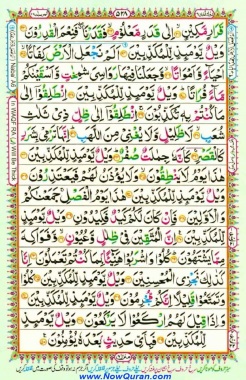 ۵۲۸
قَرَارٍ مَّكِيْنٍ اِلٰى قَدَرٍ مَّعْلُوْمٍ فَقَدَرْنَا فَنِعْمَ الْقٰدِرُوْنَ
وَيْلٌ يَّوْمَئِذٍ لِّلْمُكَذِّبِيْنَ اَلَمْ نَجْعَلِ الْاَرْضَ كِفَاتًا
اَحْيَآءً وَّاَمْوَاتًا وَّجَعَلْنَا فِيْهَا رَوَاسِيَ شٰمِخٰتٍ وَّاَسْقَيْنٰكُمْ
مَّآءً فُرَاتًا وَيْلٌ يَّوْمَئِذٍ لِّلْمُكَذِّبِيْنَ اِنْطَلِقُوْٓا اِلٰى
مَا كُنْتُمْ بِهٖ تُكَذِّبُوْنَ اِنْطَلِقُوْٓا اِلٰى ظِلٍّ ذِيْ ثَلٰثِ
شُعَبٍ لَّا ظَلِيْلٍ وَّلَا يُغْنِيْ مِنَ اللَّهَبِ اِنَّهَا تَرْمِيْ بِشَرَرٍ
كَالْقَصْرِ كَاَنَّهٗ جِمٰلَتٌ صُفْرٌ وَيْلٌ يَّوْمَئِذٍ لِّلْمُكَذِّبِيْنَ
هٰذَا يَوْمُ لَا يَنْطِقُوْنَ وَلَا يُؤْذَنُ لَهُمْ فَيَعْتَذِرُوْنَ
وَيْلٌ يَّوْمَئِذٍ لِّلْمُكَذِّبِيْنَ هٰذَا يَوْمُ الْفَصْلِ جَمَعْنٰكُمْ
وَالْاَوَّلِيْنَ فَاِنْ كَانَ لَكُمْ كَيْدٌ فَكِيْدُوْنِ وَيْلٌ يَّوْمَئِذٍ
لِّلْمُكَذِّبِيْنَ اِنَّ الْمُتَّقِيْنَ فِيْ ظِلٰلٍ وَّعُيُوْنٍ وَّفَوَاكِهَ
مِمَّا يَشْتَهُوْنَ كُلُوْا وَاشْرَبُوْا هَنِيْٓئًا بِمَا كُنْتُمْ تَعْمَلُوْنَ اِنَّا
كَذٰلِكَ نَجْزِي الْمُحْسِنِيْنَ وَيْلٌ يَّوْمَئِذٍ لِّلْمُكَذِّبِيْنَ كُلُوْا
وَتَمَتَّعُوْا قَلِيْلًا اِنَّكُمْ مُّجْرِمُوْنَ وَيْلٌ يَّوْمَئِذٍ لِّلْمُكَذِّبِيْنَ
وَاِذَا قِيْلَ لَهُمُ ارْكَعُوْا لَا يَرْكَعُوْنَ وَيْلٌ يَّوْمَئِذٍ
لِّلْمُكَذِّبِيْنَ فَبِاَيِّ حَدِيْثٍۭ بَعْدَهٗ يُؤْمِنُوْنَ
www.NowQuran.com